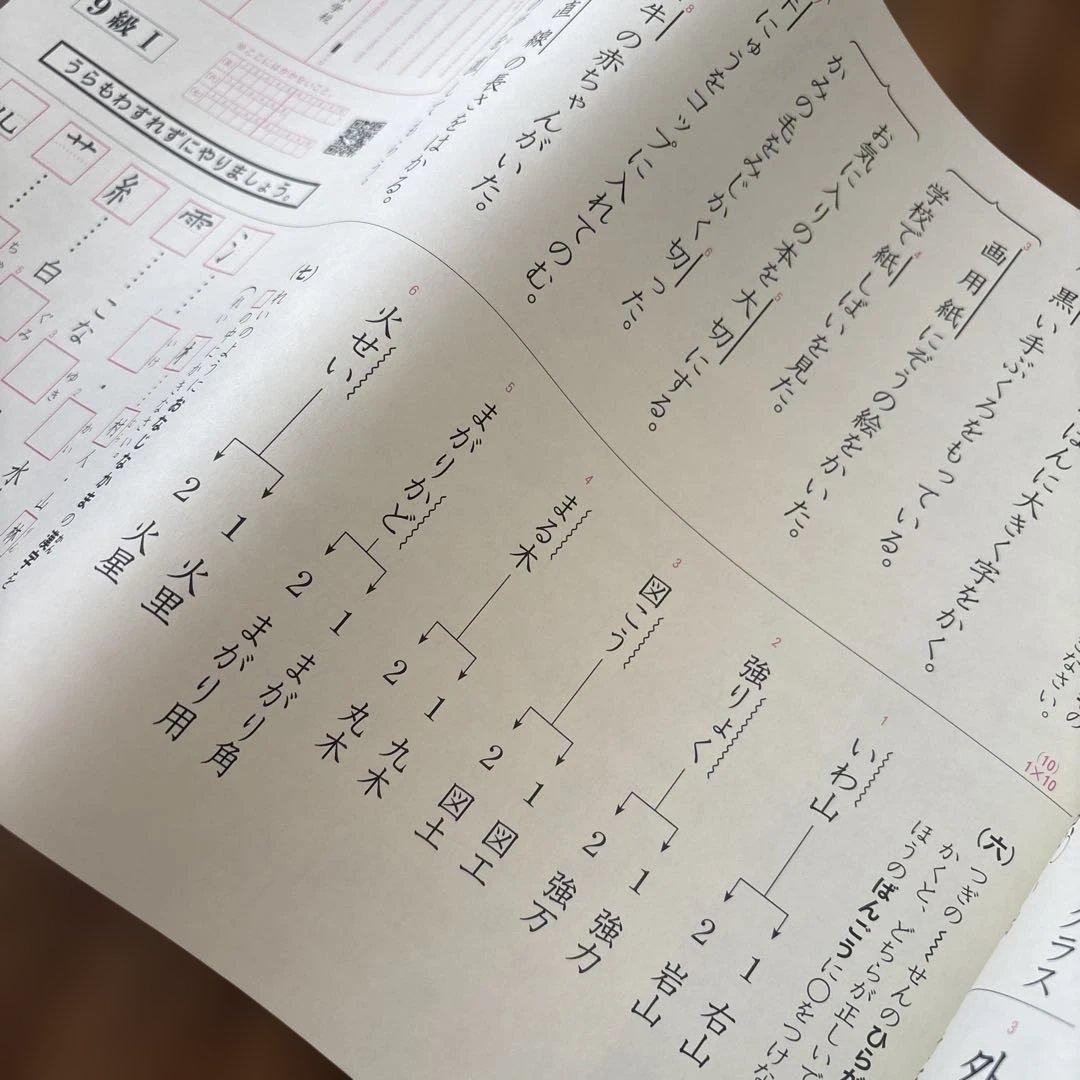 黒い手ぶくろをもっている。
ばんに大きく字をかく。
画用紙にぞうの絵をかいた。
学校で紙しばいを見た。
お気に入りの本を大切にする。
かみの毛をみじかく切った。
にゅうをコップに入れてのむ。
牛の赤ちゃんがいた。
直線の長さをはかる。
(10)
1×10
(六)
つぎの せんのひらが
かくと、どちらが正しいで
ほうのばんごうに○をつけな
1
いわ山
1 右山
2 岩山
2
強りょく
1 強力
2 強万
3
図こう
1 図工
2 図土
4
まる木
1 九木
2 丸木
5
まがりかど
1 まがり角
2 まがり用
6
火せい
1 火里
2 火星
(七)
れいのようにおなじなかまの漢字を
氵
雨
糸
艹
こな
白
ゆき
ぐみ
水
人・山
9級Ⅰ
うらもわすれずにやりましょう。
※ここにはかかないこと。
学校
クラス
3
外